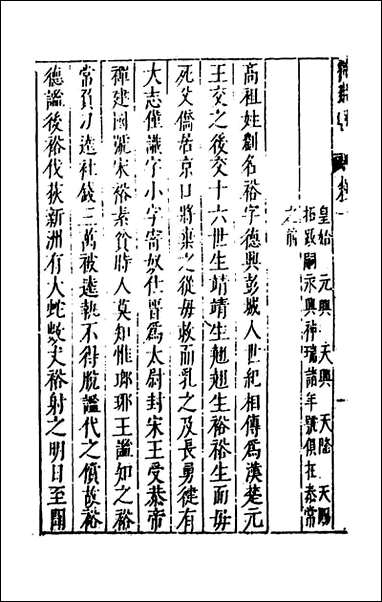 皇始 元興 天興 天賜
拓跋嗣永興神瑞諸年號俱在泰常
之前
高祖姓劉名裕字德興彭城人世紀相傳爲漢楚元
王交之後交十六世生靖靖生翹翹生裕裕生而母
死父僑居京口將棄之從母救而乳之及長勇健有
大志僅識字小字寄奴仕晋爲太尉封宋王受恭帝
禪建國號宋裕素貧時人莫知惟瑯琊王謐知之裕
常負刁逵社錢三萬被逵執不得脫謐代之償故裕
德謐後裕伐荻新洲有大蛇數丈裕射之明日至聞